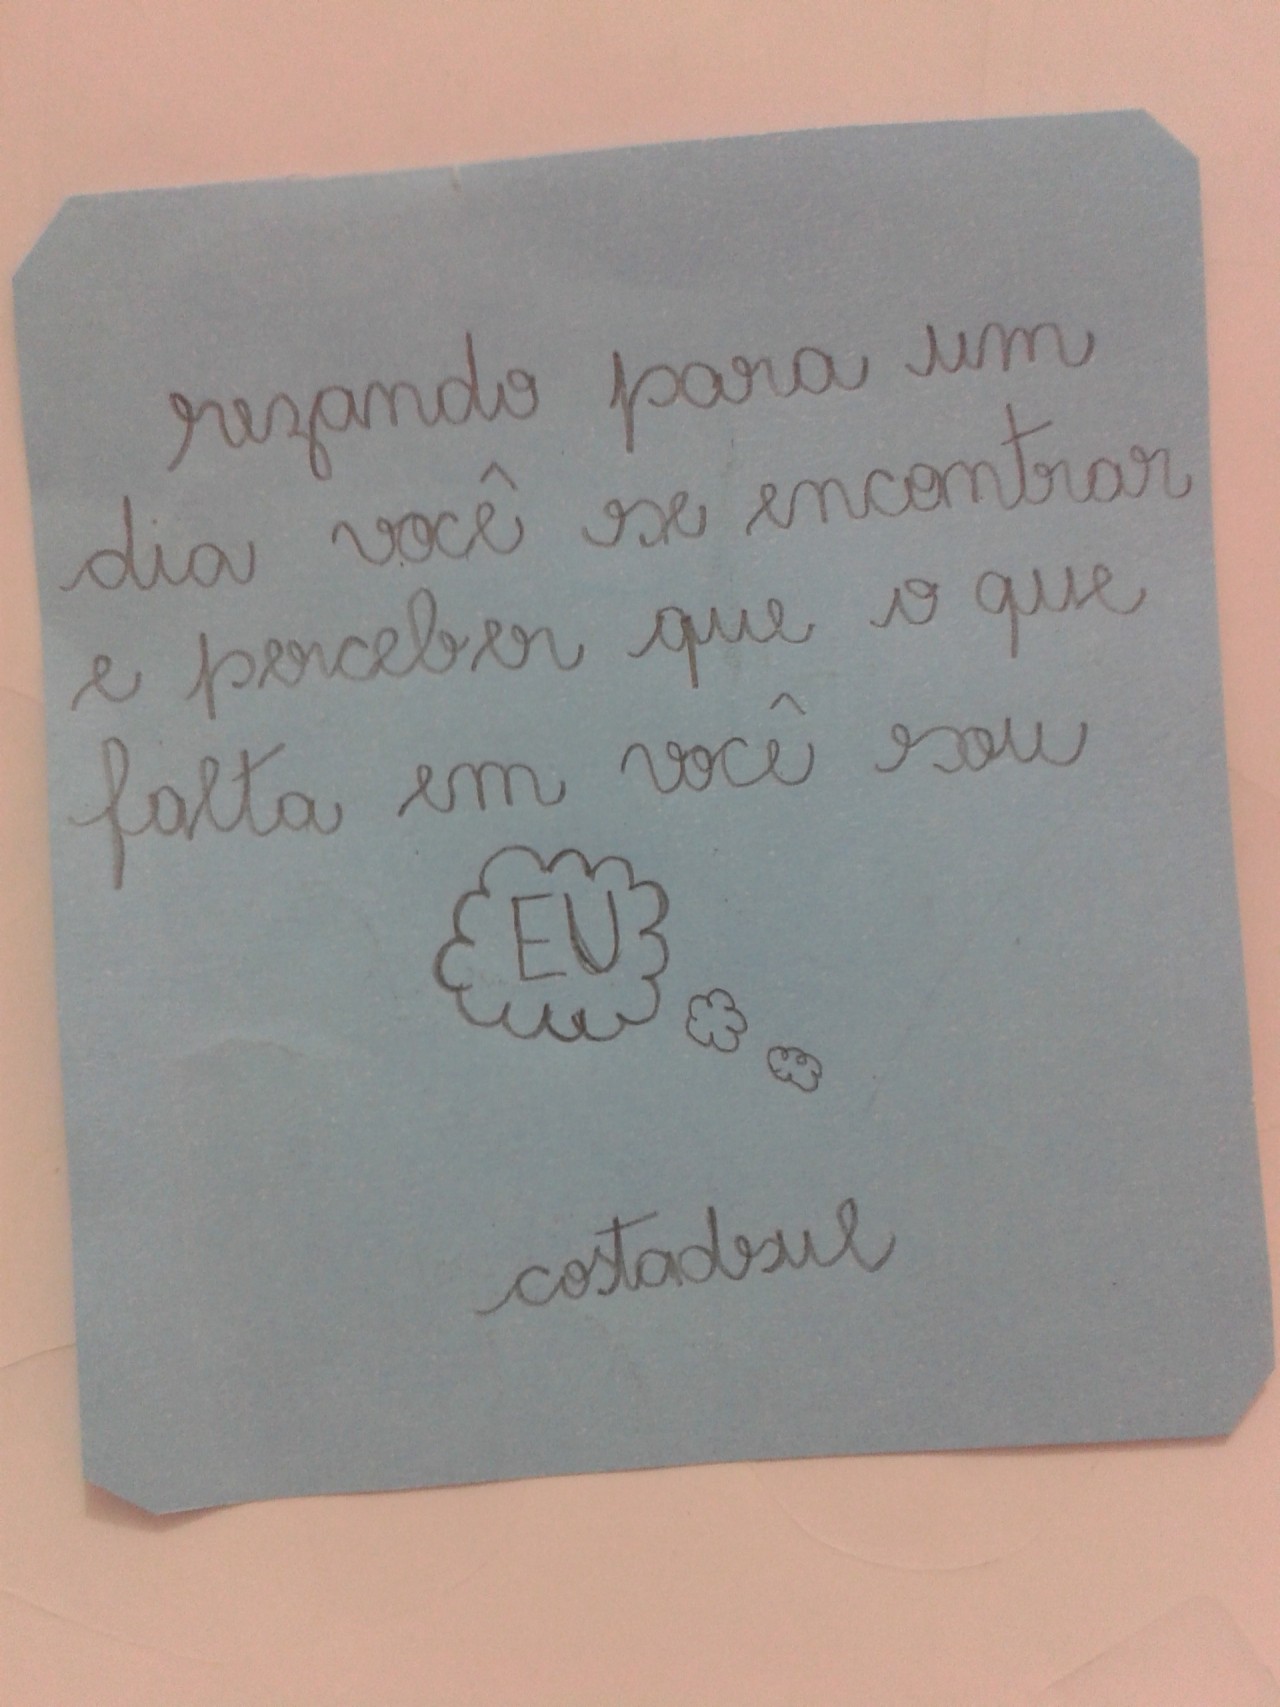 rezando para um
dia você se encontrar
e perceber que o que
falta em você sou
EU
costadosul